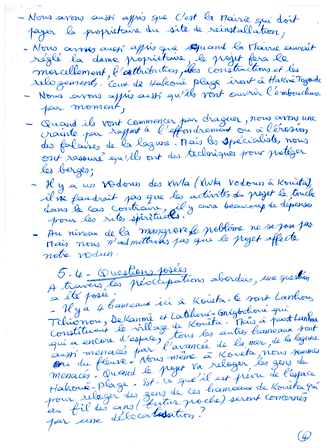 - Nous avons aussi appris que c'est la Mairie qui doit
payer la propriétaire du site de reinstallation;
- Nous avons aussi appris que quand la Mairie aurait
réglé la dame propriétaire le projet fera le
morcellement, l'attribution, les constructions et les
relogements. Ceux de Hakoué plage iront à Hakoué
- Nous avons appris aussi qu'ils vont ouvrir l'embouchure
par moment;
- Quand ils vont commencer par draguer, nous avons une
crainte par rapport à l'effondrement ou à l'érosion
des falaises de la lagune. Mais les spécialistes nous
ont rassuré qu'ils ont des techniques pour protéger
les berges;
- Il y a un vodoun des Xwla (Xwla vodoun à Kouéta)
il ne faudrait pas que les activités du projet le touche
dans le cas contraire, il y aura beaucoup de dépenses
pour les rites spirituels.
- Au niveau de la mangrove le problème ne se pose pas
Mais nous n'admettrons pas que le projet affecte
notre vodun.
5-4- Questions posées
A travers les préoccupations abordées, une question
a été posée:
- Il y a 4 hameaux ici à Kouéta. Ce sont Lanhou,
constituant le village de Kouéta. Mais à part Lanhou
qui a encore d'espace, tous les autres hameaux sont
aussi menacés par l'avancée de la mer, de la lagune
ou du fleuve. Nous même à Kouéta, nous sommes
menacés. Quand le projet va reloger les gens de
Hakoué-Plage. Est-ce que il est prévu de l'espace
pour reloger les gens de ces hameaux de Kouéta qui
au fil des ans (futur proche) seront concernés
par une délocalisation?
4